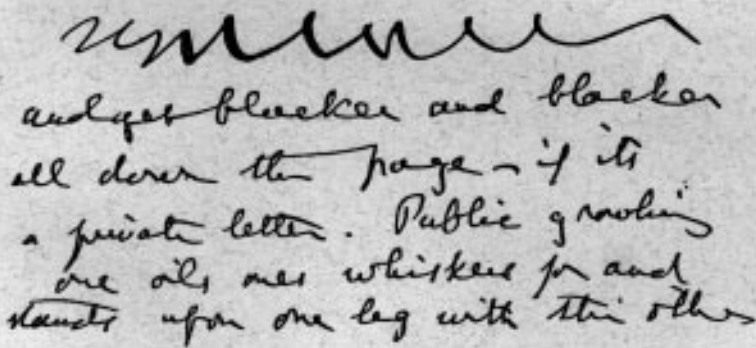 and get blacker and blacker
all down the page – if its
a private letter. Public growling
one oils ones whiskers for and
stands upon one leg with the other